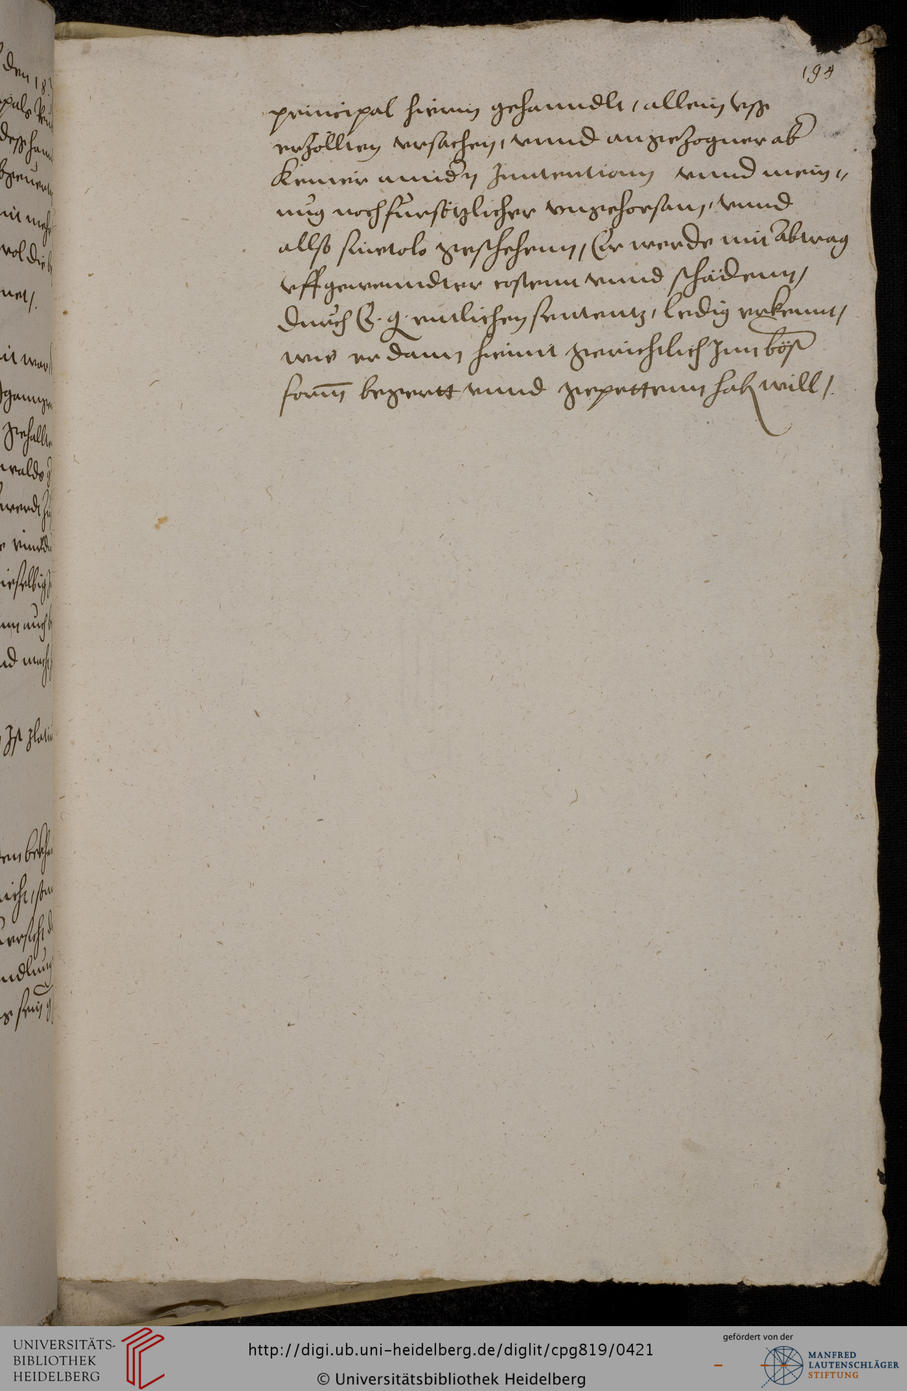 194
principal hierin gehanndlt, allein vss
erzöllten vrsachen, vnnd angezogner ab
keiner annd'n Inntention vnnd mein„
nug noch fürsätzlicher vngehorsam, vnnd
allso sine dolo geschehenn, Er werde mit abtrag
vffgewenndter costenn vnnd schädenn,
durch E. g. entlichen sententz, ledig erkennt,
wie er dann hiemit gerichtlich Inn böst
form begertt vnnd gepettenn hab will,.
UNIVERSITÄTS-
BIBLIOTHEK
HEIDELBERG
http://digi.ub.uni-heidelberg.de/diglit/cpg819/0421
© Universitätsbibliothek Heidelberg
gefördert von der
MANFRED
LAUTENSCHLÄGER
STIFTUNG